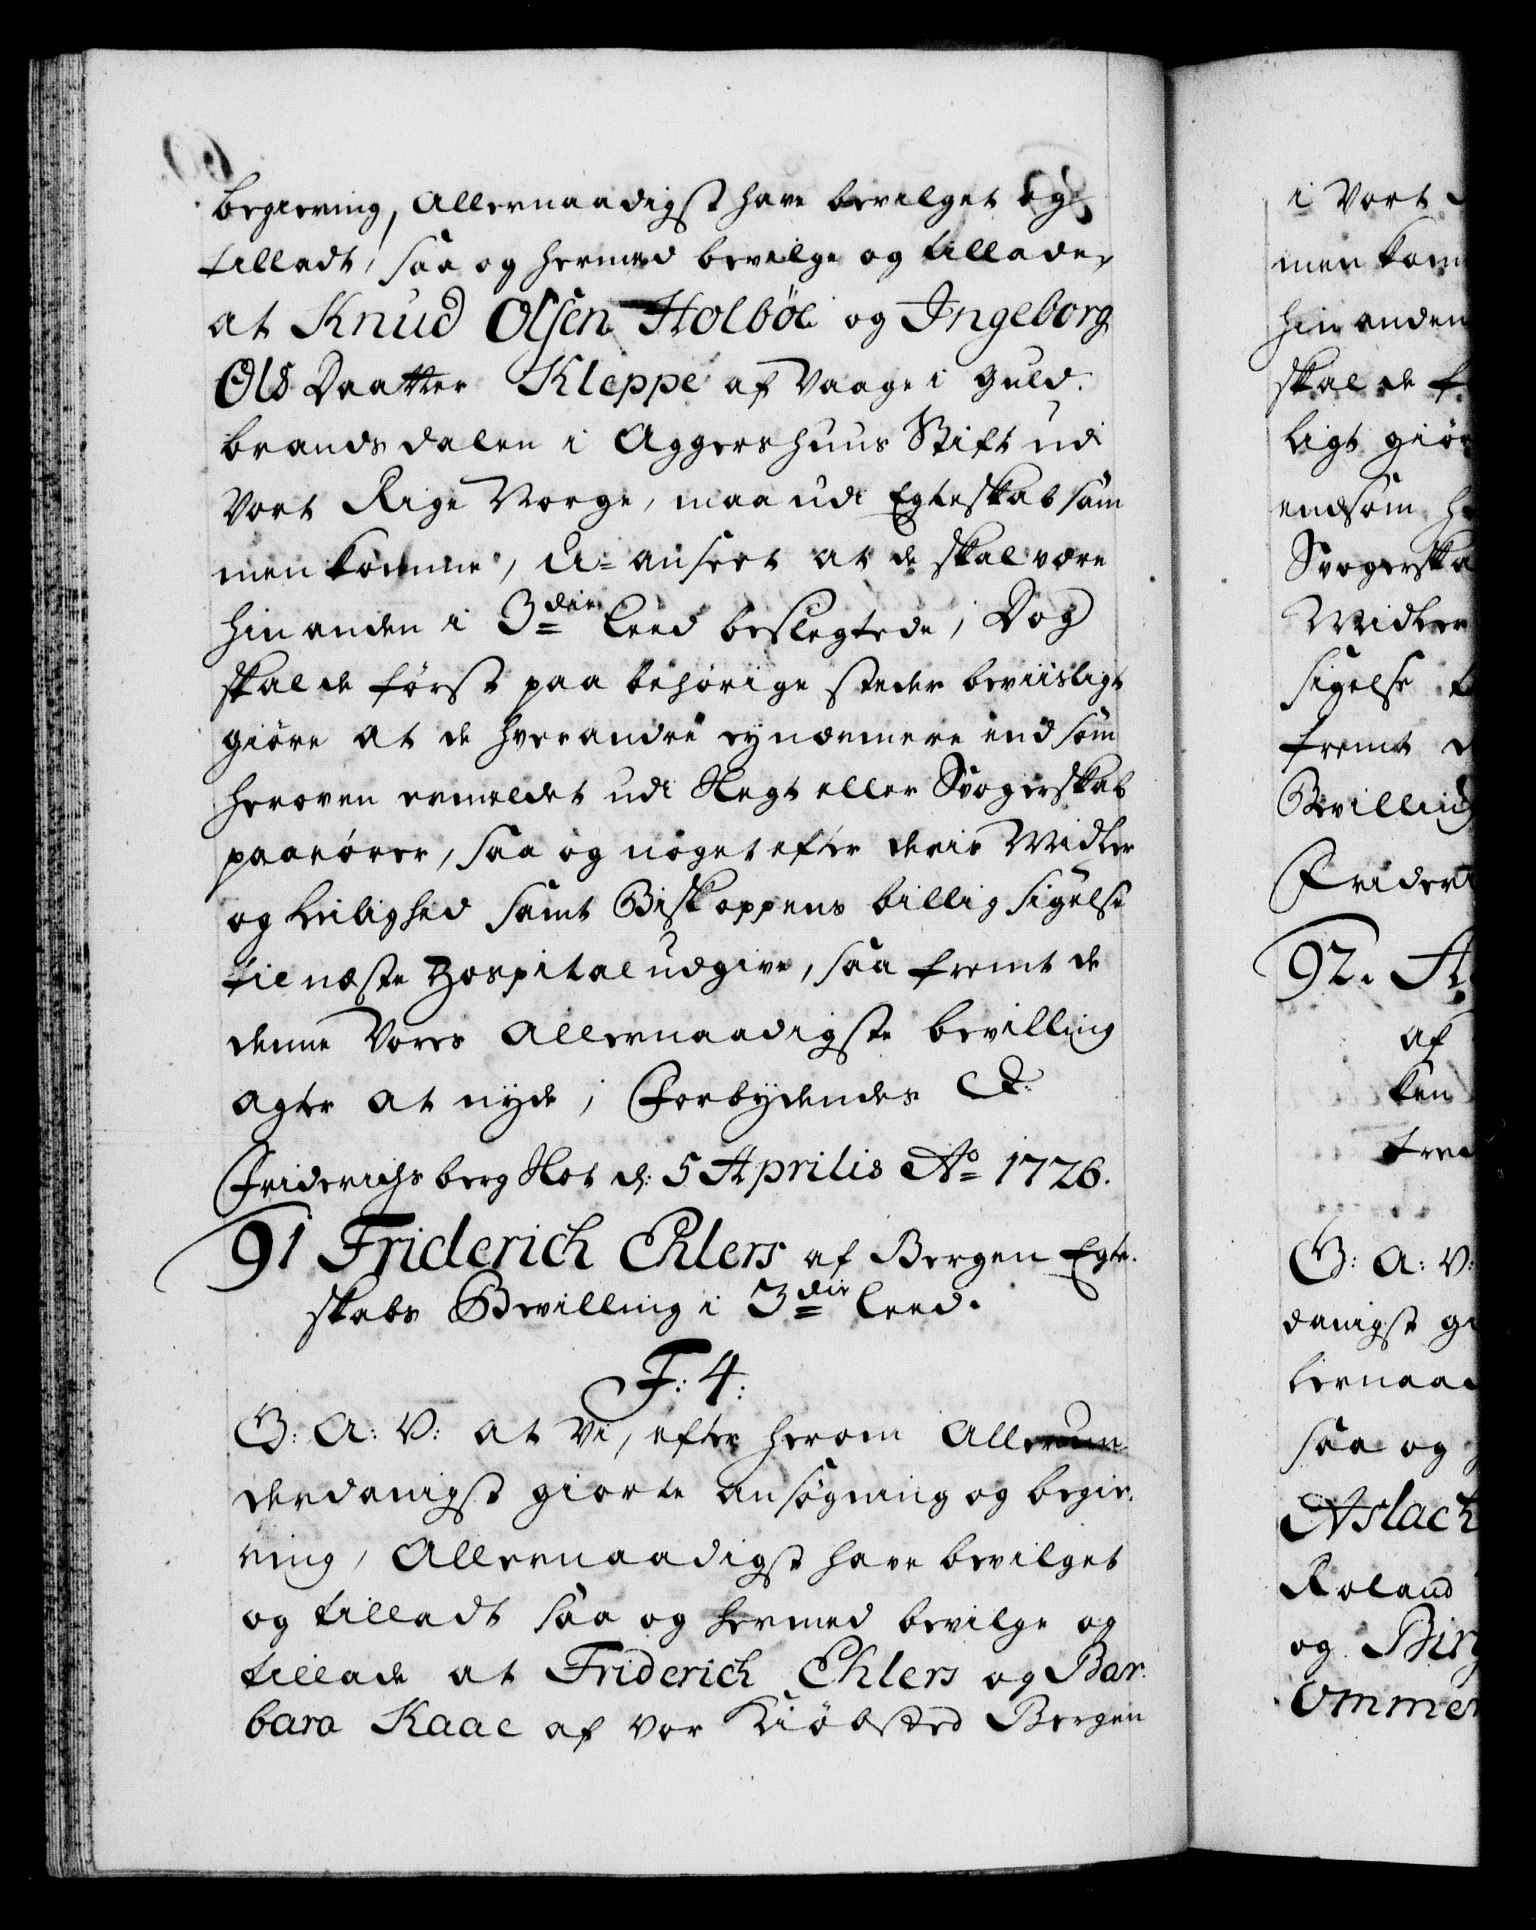 begiering, Allernaadigst have bevilget og
tilladt, saa og hermed bevilge og tillade,
at Knud Olsen Holböe og Ingeborg
Ols Daatter Kleppe af Vaage i Guld.
brands dalen i Aggershuus Stift udi
Vort Rige Norge, maa udi Egteskab sam
men komme, U=anseet at de skal være
hin anden i 3die Leed beslegtede; Dog
skal de først paa behørige steder beviisligt
giøre at de hverandre ey nærmere end som
heroven ermeldet udi Slegt eller Svogerskab
paarører, saa og noget efter deris Midler
og Leilighed samt Biskoppens billig sigelse
til næste Hospital udgive, saa fremt de
denne Vores Allernaadigste bevilling
agter at nyde; Forbydendes &:
Friderichsberg Slot d: 5 Aprilis Ao 1726.
91 Friderich Ehlers af Bergen Egte.
skabs Bevilling i 3die Leed.
F: 4:
G: A: V: at Vi, efter herom Allerun
derdanigst giorte ansøgning og begie.
ring, Allernaadigst have bevilget
og tilladt saa og hermed bevilge og
tillade at Friderich Ehlers og Bar.
bara Kaae af vor Kiøbsted Bergen
i Vort
men kom
hin anden
skal de f
ligt giør
endsom he
Svogerska
Midler
sigelse
fremt d
Bevilling
Frideri
92. A
af
ken
tred
G: A: V:
danigst gi
lernaad
saa og
Aslach
Roland
og Birg
Ommen